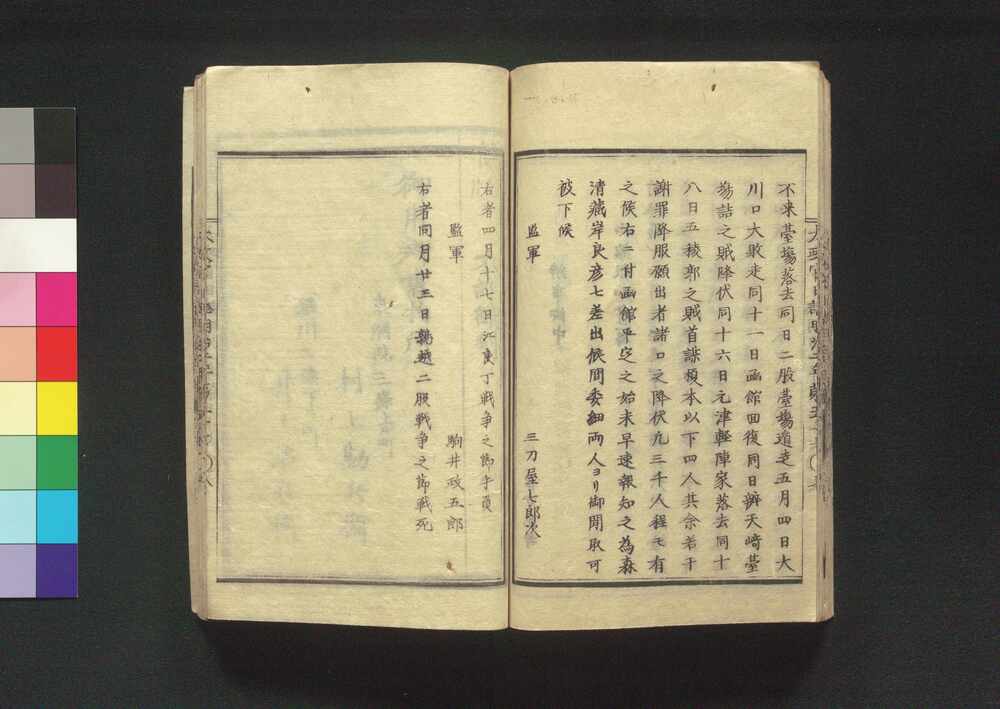 不来臺塲落去同日二股臺塲遁走五月四日大
川口大敗走同十一日函館回復同日辨天﨑臺
塲詰之賊降伏同十六日元津軽陣家落去同十
八日五稜郭之賊首謀榎本以下四人共余若干
謝罪降服願出者諸口之降伏凡三千人程モ有
之候右ニ付函館平定之始末早速報知之為森
清藏岸良彦七差出候間委細両人ヨリ御聞取可
被下候
監軍
三刀屋七郎次
右者四月十七日江良丁戦争之節手負
監軍
駒井政五郎
右者同月廿三日鶉越二股戦争之節戦死